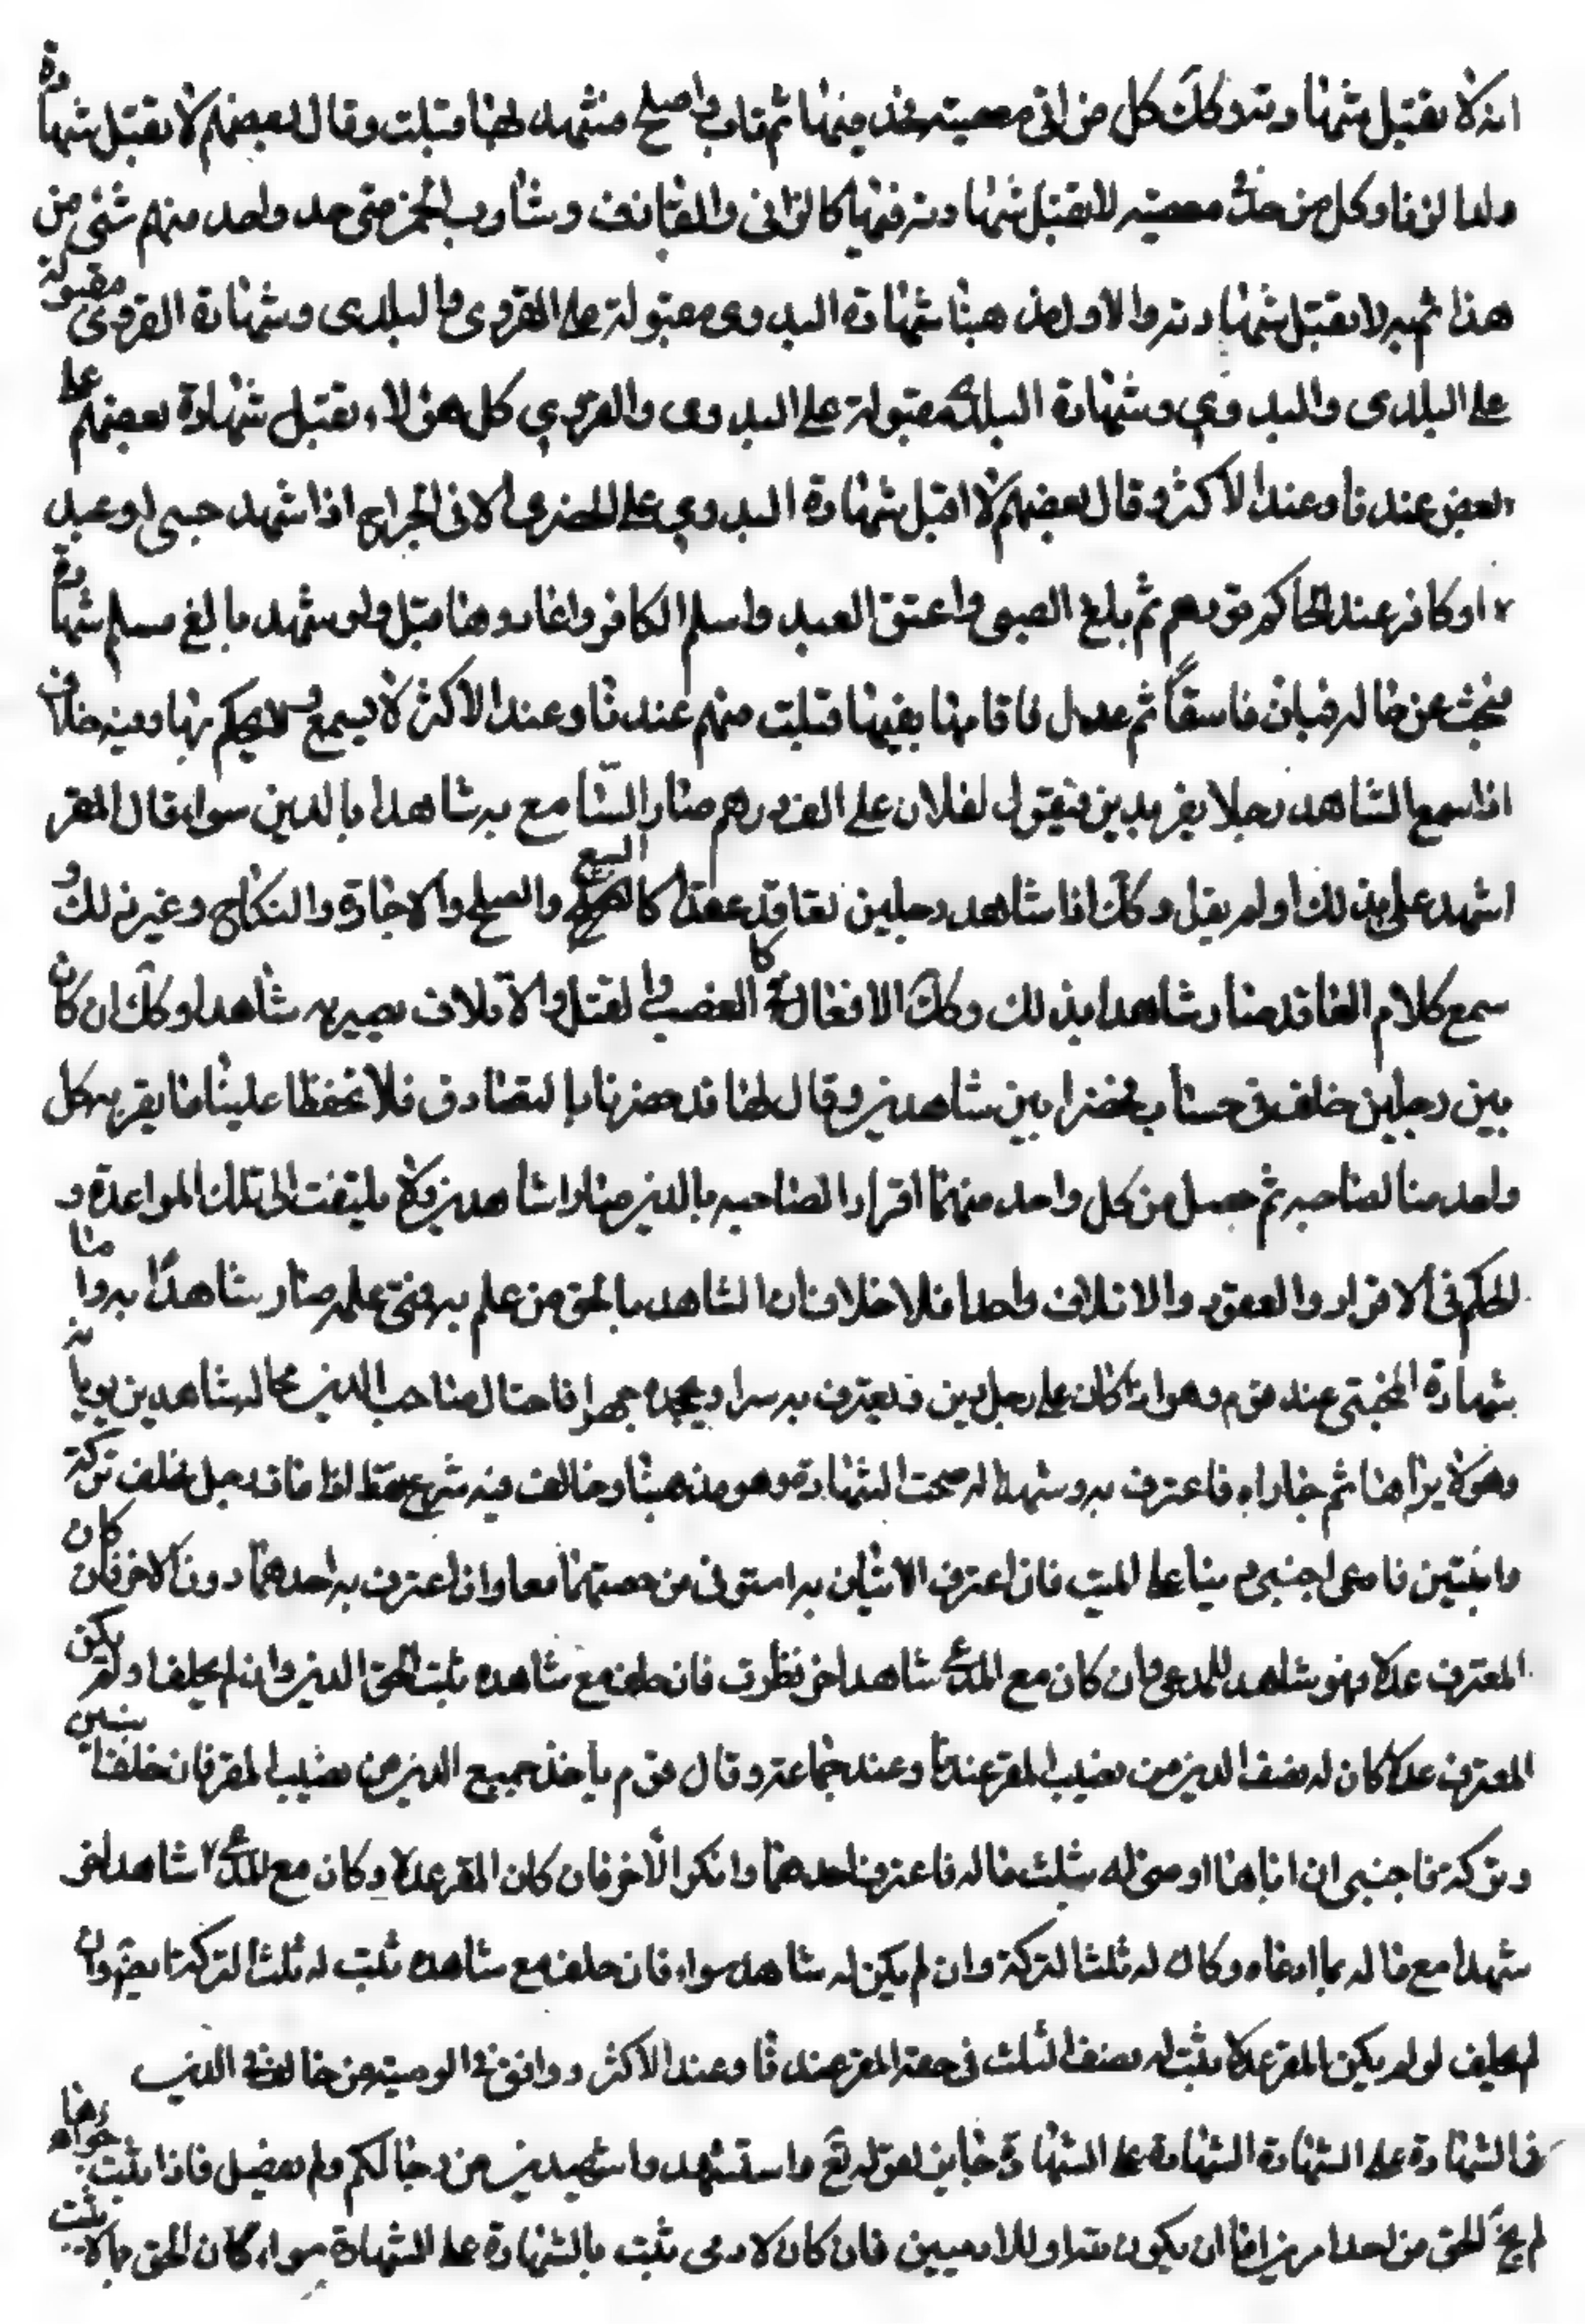 انه لا يقبل شهادته وكك كل من اتى معصية فحد فيها ثم تاب واصلح فشهد لها قبلت وقال بعضهم لا يقبل شهادة
ولد الزنا وكل من حد معصية لا يقبل شهادته فيها كالزاني والقاذف وشارب الخمر متى حد واحد منهم شئ من
هذا ثم لا يقبل شهادته والاول مذهبنا شهادة البدوى مقبولة على القروى والبلدى وشهادة القروى مقبولة
على البلدى والبدوي وشهادة البلدى مقبولة على البدوى والقروي كل هؤلاء يقبل شهادة بعضهم على
بعض عندنا وعند الاكثر وقال بعضهم لا اقبل شهادة البدوي على الحضرى الا في الجراح اذا شهد صبى او عبد
او كافر عند الحاكم ثم بلغ الصبى واعتق العبد واسلم الكافر واعادوها قبل ولو شهد بالغ مسلم شهادة
فبحث عن حاله فبان فاسقاً ثم عدل فاقامها بعينها قبلت منهم عندنا وعند الاكثر لا يسمع ولا يحكم بها وفيه خلاف
اذا سمع الشاهد رجلا يقر بدين فيقول لفلان على الف درهم صار السامع به شاهدا بالدين سواء قال المقر
اشهد على بذلك او لم يقل وكك اذا شاهد رجلين تعاقدا عقدا كالبيع والصلح والاجارة والنكاح وغير ذلك و
سمع كلام العاقد صار شاهدا بذلك وكك الافعال كالغصب والقتل والاتلاف يصير به شاهدا وكك ان كان
بين رجلين خلف في حساب فحضرا بين شاهدين وقالا لهما قد حضرنا بالتصادق فلا تحفظا علينا ما يقر به كل
واحد منا لصاحبه ثم حصل من كل واحد منهما اقرار لصاحبه بالدين صارا شاهدين ولا يلتفت الى تلك المواعدة و
الحكم في الاقرار والعقود والاتلاف واحد فلا خلاف ان الشاهد بالحق من علم به فمتى علمه صار شاهداً به واما
شهادة المختبى عند قوم وهو اذا كان على رجل دين فيعترف به سرا ويجحده جهرا فاحتال صاحب الدين فخبا له شاهدين يريانه
وهو لا يراهما ثم جاراه فاعترف به وشهدا له صحت الشهادة وهو مذهبنا وخالف فيه شريح فقط اذا مات رجل فخلف تركة
وابنين فادعى اجنبى دينا على الميت فان اعترف الابنان به استوفى من حصتهما معا وان اعترف به احدهما دون الاخر فان كان
المعترف عدلا فهو شاهد للمدعى وان كان مع المدعى شاهد اخر نظرت فان حلف مع شاهده ثبت الحق الدين وان لم يحلف او لم يكن
المعترف عدلا كان له نصف الدين من نصيب المقر عندنا وعند جماعة وقال قوم ياخذ جميع الدين من نصيب المقر فان خلف ابنين
وتركة فادعى اجنبى ان اباهما اوصى له بثلث ماله فاعترف احدهما وانكر الاخر فان كان المقر عدلا وكان مع المدعى شاهد اخر
شهدا مع ما له بما ادعاه وكان له ثلث التركة وان لم يكن له شاهد سواه فان حلف مع شاهده ثبت له ثلث التركة ايضا وان
لم يحلف او لم يكن المقر عدلا يثبت له نصف الثلث في حصة المقر عندنا وعند الاكثر ووافق في الوصية من خالف في الدين
في الشهادة على الشهادة الشهادة على الشهادة جايزة لقوله تع واستشهدوا شهيدين من رجالكم ولم يفصل فاذا ثبت جوازها
لم يخل الحق من احد امرين اما ان يكون لله او للادميين فان كان لادمى ثبت بالشهادة على الشهادة سواء كان الحق مما لا يثبت